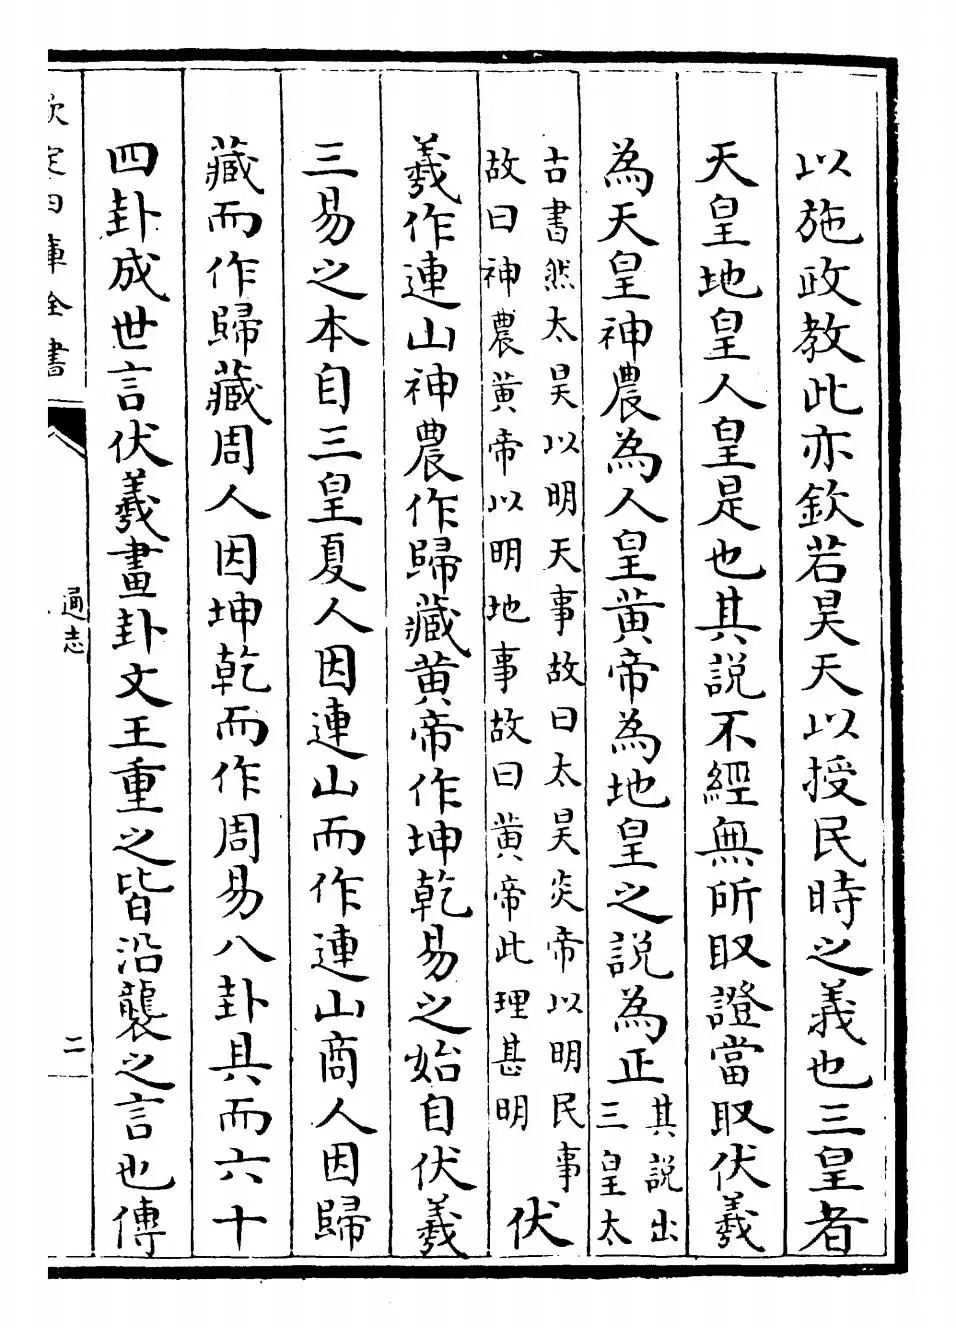 以施政教此亦欽若昊天以授民時之義也三皇者
天皇地皇人皇是也其説不經無所取證當取伏羲
為天皇神農為人皇黃帝為地皇之説為正
其説出
三皇太
古書然太昊以明天事故曰太昊炎帝以明民事
故曰神農黃帝以明地事故曰黃帝此理甚明
伏
羲作連山神農作歸藏黃帝作坤乾易之始自伏羲
三易之本自三皇夏人因連山而作連山商人因歸
藏而作歸藏周人因坤乾而作周易八卦具而六十
四卦成世言伏羲畫卦文王重之皆沿襲之言也傳
欽定四庫全書
通志
二